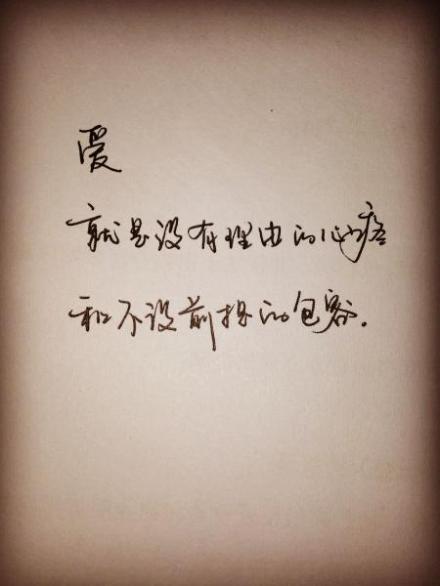 爱
就是没有理由的心疼
和不设前提的包容.